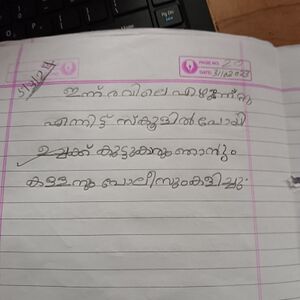 PAGE NO. 20
DATE: 31/02/2023
ഇന്ന് രവിലെ എഴുന്നേറ്റു
എന്നിട്ട് സ്കൂളിൽ പോയി
ഉച്ചക്ക് കൂട്ടുകാരും ഞാനും
കള്ളനും പോലീസും കളിച്ചു.